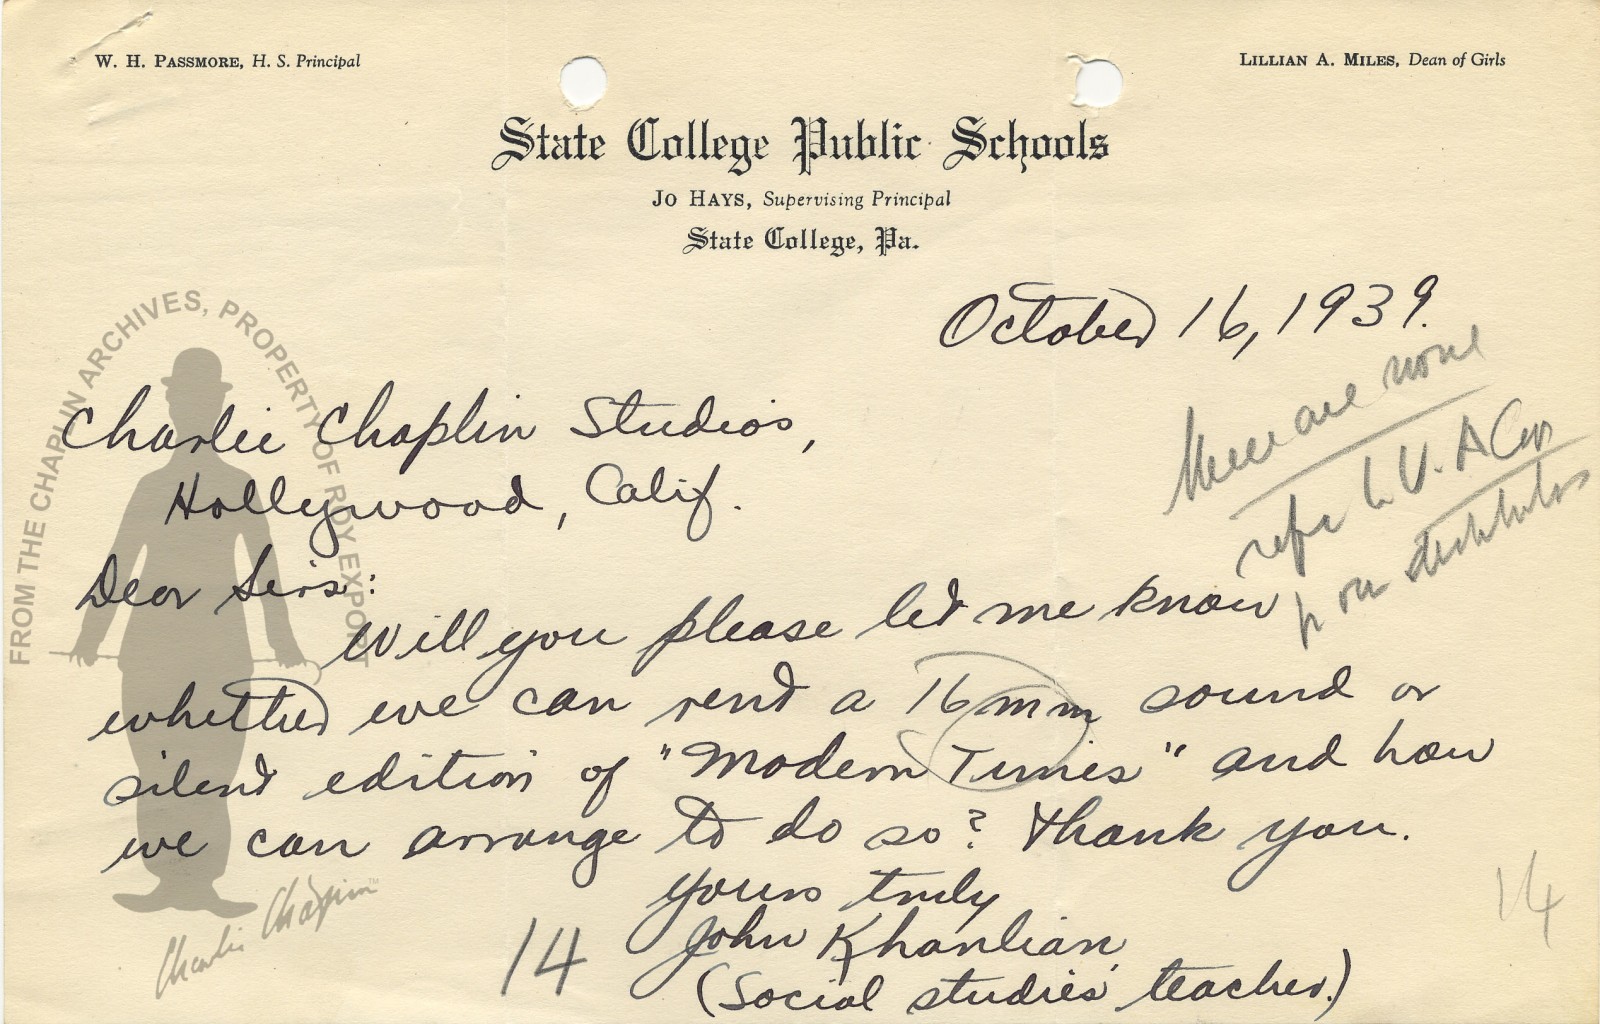 W. H. PASSMORE, H. S. Principal
LILLIAN A. MILES, Dean of Girls
State College Public Schools
JO HAYS, Supervising Principal
State College, Pa.
October 16, 1939.
there are none
refer to U. A Corp
our distributors
FROM THE CHAPLIN ARCHIVES, PROPERTY OF ROY EXPORT
Charlie Chaplin Studios,
Hollywood, Calif.
Dear Sirs:
Will you please let me know
whether we can rent a 16 mm sound or
silent edition of "Modern Times" and how
we can arrange to do so? Thank you.
Yours truly
John Khanlian
(Social studies teacher.)
14
14
Charlie Chaplin™